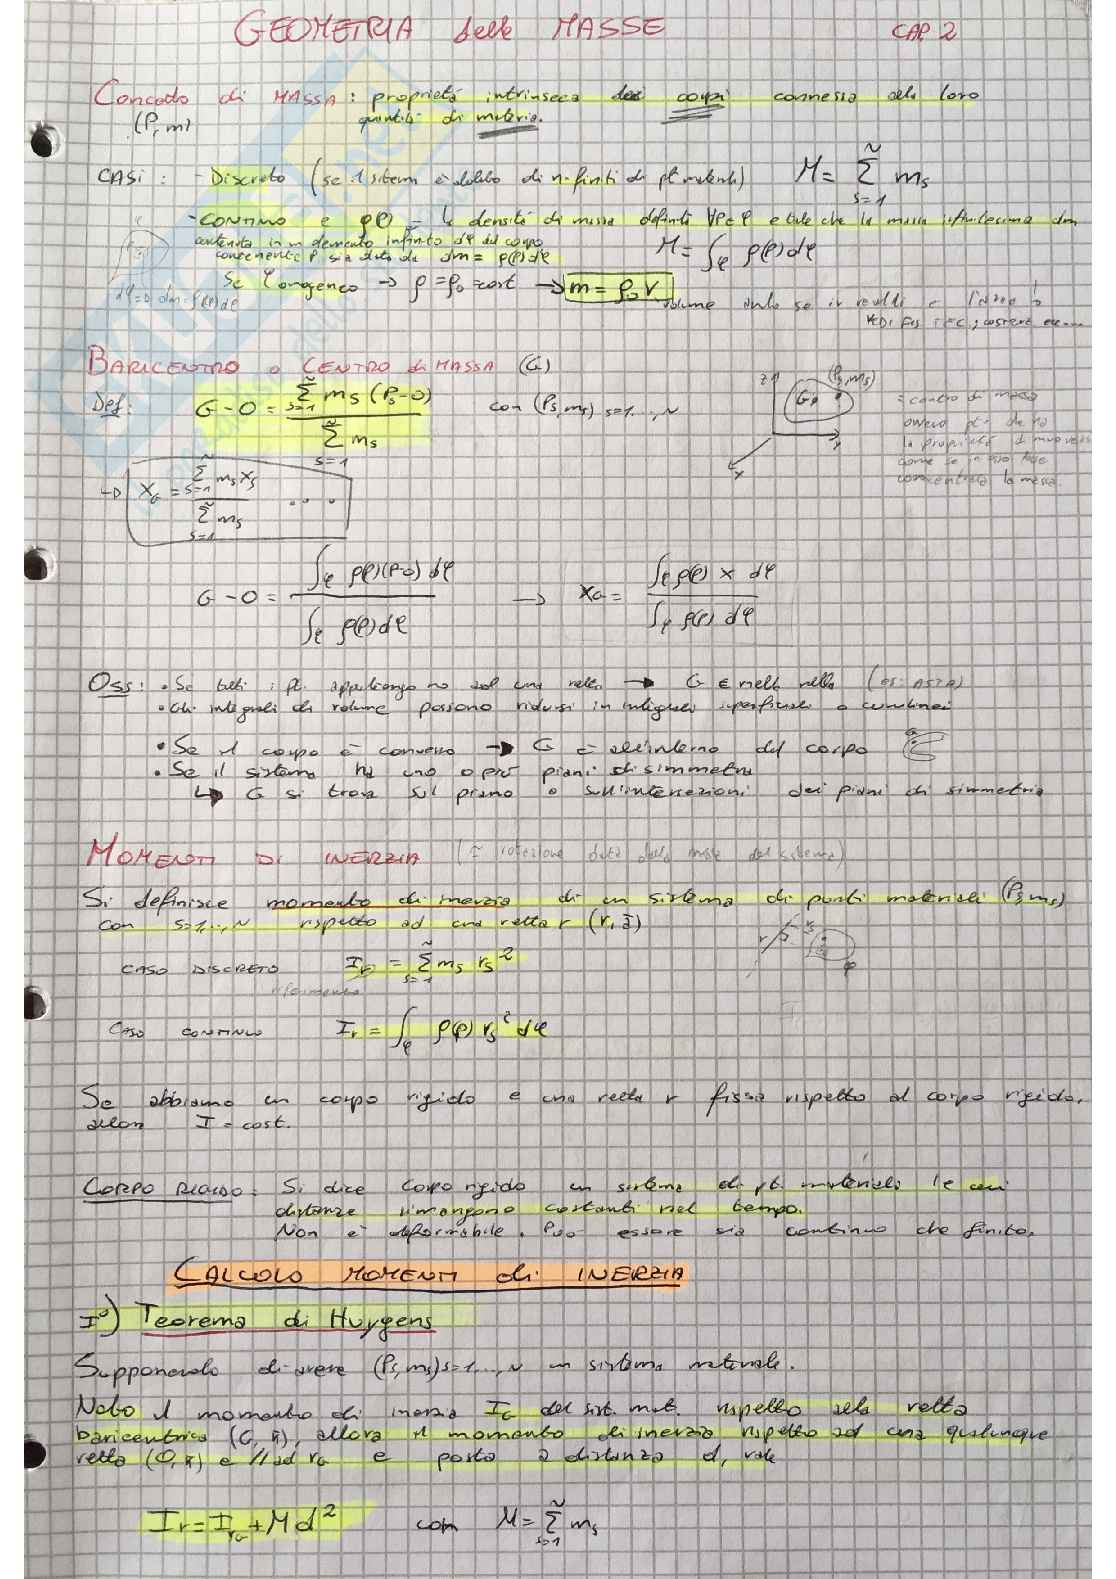 GEOMETRIA delle MASSE CAP. 2
Concetto di MASSA : proprietà intrinseca dei corpi connessa alla loro
(P, m) quantità di materia.
CASI : - Discreto (se il sistema è dotato di n-finiti di pt materiali) M = Σ_{s=1}^{N} m_s
- CONTINUO e ρ(P) = la densità di massa definita ∀P∈φ e tale che la massa infinitesima dm
contenuta in un elemento infinito dφ del corpo
contenente P sia data da dm = ρ(P)dφ M = ∫_φ ρ(P)dφ
Se omogeneo → ρ = ρ₀ = cost → m = ρ₀ V
volume
BARICENTRO o CENTRO di MASSA (G)
Def: G - O = Σ_{s=1}^{N} m_s (P_s - O) / Σ_{s=1}^{N} m_s con (P_s, m_s) s=1,...,N
(P_s, m_s)
z G y x
= centro di massa
ovvero pt. che ha
la proprietà di muoversi
come se in esso fosse
concentrata la massa.
→ X_G = Σ_{s=1}^{N} m_s x_s / Σ_{s=1}^{N} m_s ...
G - O = ∫_φ ρ(P)(P-O) dφ / ∫_φ ρ(P)dφ → x_G = ∫_φ ρ(P) x dφ / ∫_φ ρ(P) dφ
Oss : • Se tutti i pt. appartengono ad una retta → G ∈ nella retta (es: ASTA)
• Gli integrali di volume possono ridursi in integrali superficiali o curvilinei
• Se il corpo è convesso → G è all'interno del corpo
• Se il sistema ha uno o più piani di simmetria
↳ G si trova sul piano o sull'intersezioni dei piani di simmetria
MOMENTI DI INERZIA
Si definisce momento di inerzia di un sistema di punti materiali (P_s, m_s)
con s=1,..,N rispetto ad una retta r
CASO DISCRETO I_r = Σ_{s=1}^{N} m_s r_s²
riferimento
CASO CONTINUO I_r = ∫_φ ρ(P) r_s² dφ
Se abbiamo un corpo rigido e una retta r fissa rispetto al corpo rigido,
allora I = cost.
CORPO RIGIDO : Si dice corpo rigido un sistema di pt. materiali le cui
distanze rimangono costanti nel tempo.
Non è deformabile. Può essere sia continuo che finito.
CALCOLO MOMENTI di INERZIA
I°) Teorema di Huygens
Supponendo di avere (P_s, m_s) s=1,..,N un sistema materiale.
Noto il momento di inerzia I_G del sist. mat. rispetto alla retta
baricentrica (G, ū), allora il momento di inerzia rispetto ad una qualunque
retta (O, ū) e // ad r_G e posta a distanza d, vale
I_r = I_{rG} + M d² con M = Σ_{s=1}^{N} m_s